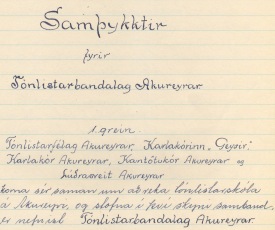 Samþykktir
fyrir
Tónlistarbandalag Akureyrar
1. grein
Tónlistarfélag Akureyrar, Karlakórinn „Geysir"
Karlakór Akureyrar, Kantötukór Akureyrar og
Lúðrasveit Akureyrar
koma sér saman um at reka tónlistarskóla
á Akureyri, og stofna í því skyni samband,
er nefnist Tónlistarbandalag Akureyrar.